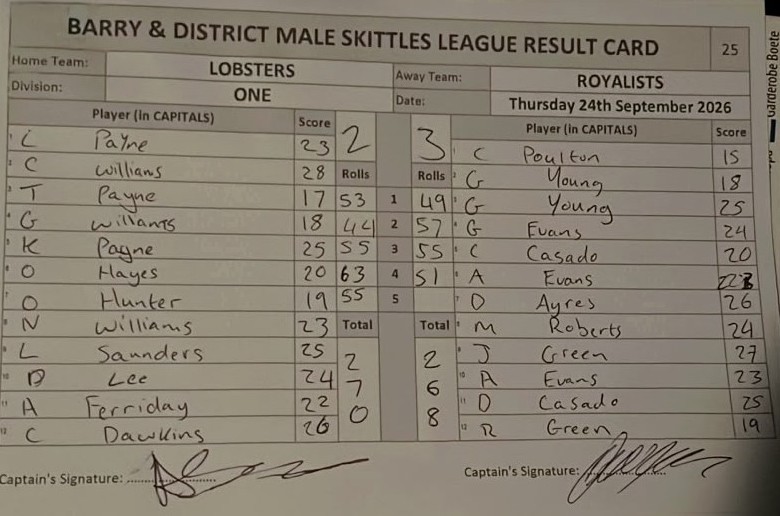 BARRY & DISTRICT MALE SKITTLES LEAGUE RESULT CARD 25
Home Team: LOBSTERS Away Team: ROYALISTS
Division: ONE Date: Thursday 24th September 2026
Player (in CAPITALS) Score 2 3 Player (in CAPITALS) Score
1 L Payne 23 1 C Poulton 15
2 C Williams 28 Rolls Rolls 2 G Young 18
3 T Payne 17 53 1 49 3 G Young 25
4 G Williams 18 44 2 57 4 G Evans 24
5 K Payne 25 55 3 55 5 C Casado 20
6 O Hayes 20 63 4 51 6 A Evans
7 O Hunter 19 55 5 7 D Ayres 26
8 N Williams 23 Total Total 8 M Roberts 24
9 L Saunders 25 2 2 9 J Green 27
10 D Lee 24 7 6 10 A Evans 23
11 A Ferriday 22 0 8 11 D Casado 25
12 C Dawkins 26 12 R Green 19
Captain's Signature: Captain's Signature: